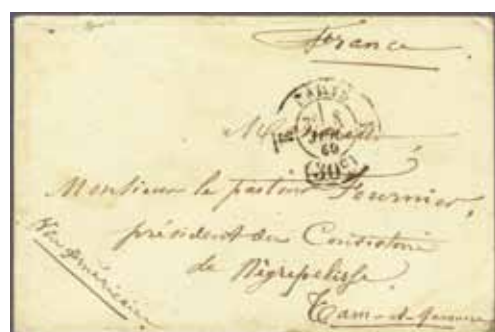 France
PARIS
60
(30c)
Monsieur le pasteur Fournier,
président du Consistoire
de Nègrepelisse
Tarn-et-Garonne